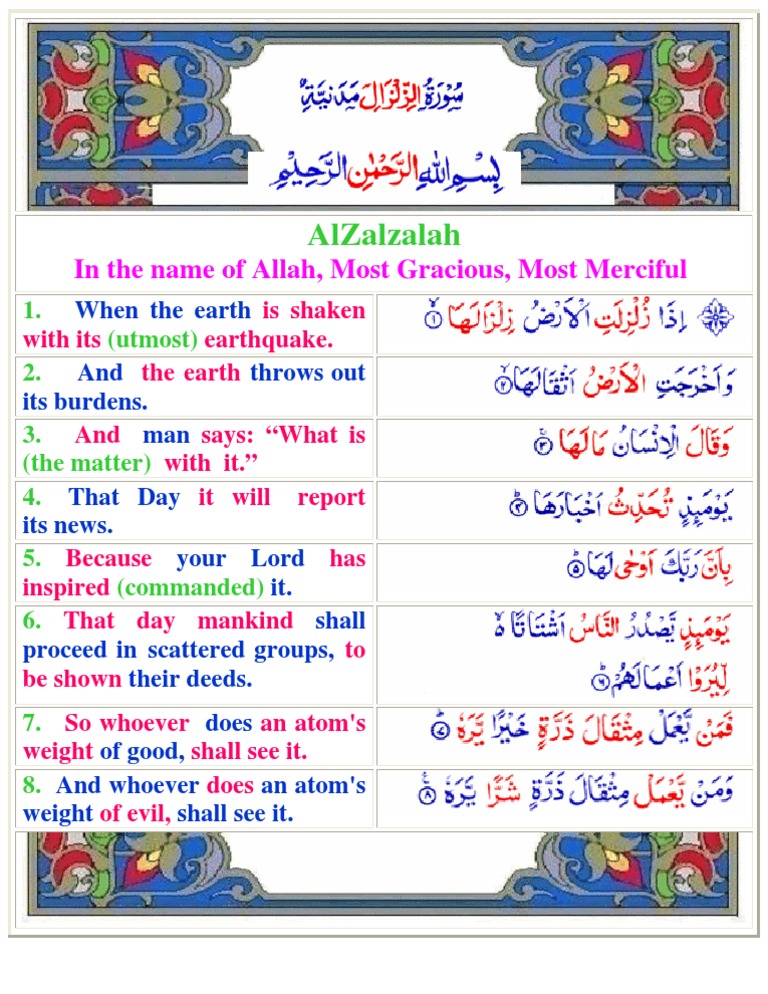 سُوْرَةُ الزِّلْزَالِ مَدَنِيَّةٌ
بِسْمِ اللّٰهِ الرَّحْمٰنِ الرَّحِيْمِ
AlZalzalah
In the name of Allah, Most Gracious, Most Merciful
1. When the earth is shaken
with its (utmost) earthquake.
اِذَا زُلْزِلَتِ الْاَرْضُ زِلْزَالَهَا ۙ۝١
2. And the earth throws out
its burdens.
وَاَخْرَجَتِ الْاَرْضُ اَثْقَالَهَا ۙ۝٢
3. And man says: “What is
(the matter) with it.”
وَقَالَ الْاِنْسَانُ مَا لَهَا ۚ۝٣
4. That Day it will report
its news.
يَوْمَىِٕذٍ تُحَدِّثُ اَخْبَارَهَا ؕ۝٤
5. Because your Lord has
inspired (commanded) it.
بِاَنَّ رَبَّكَ اَوْحٰى لَهَا ؕ۝٥
6. That day mankind shall
proceed in scattered groups, to
be shown their deeds.
يَوْمَىِٕذٍ يَّصْدُرُ النَّاسُ اَشْتَاتًا ۙ۬
لِّيُرَوْا اَعْمَالَهُمْ ؕ۝٦
7. So whoever does an atom's
weight of good, shall see it.
فَمَنْ يَّعْمَلْ مِثْقَالَ ذَرَّةٍ خَيْرًا يَّرَهٗ ؕ۝٧
8. And whoever does an atom's
weight of evil, shall see it.
وَمَنْ يَّعْمَلْ مِثْقَالَ ذَرَّةٍ شَرًّا يَّرَهٗ ۠۝٨